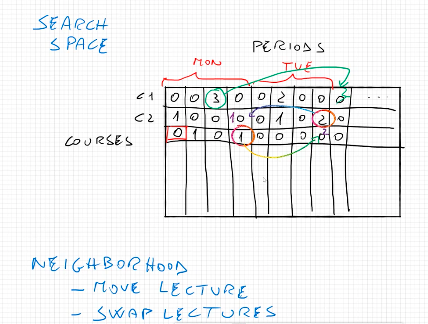 SEARCH
SPACE
PERIODS
MON TUE
C1 0 0 3 0 0 2 0 0 0 ...
C2 1 0 0 0 0 1 0 2 0
COURSES 0 1 0 1 0 0 0 0
NEIGHBORHOOD
- MOVE LECTURE
- SWAP LECTURES